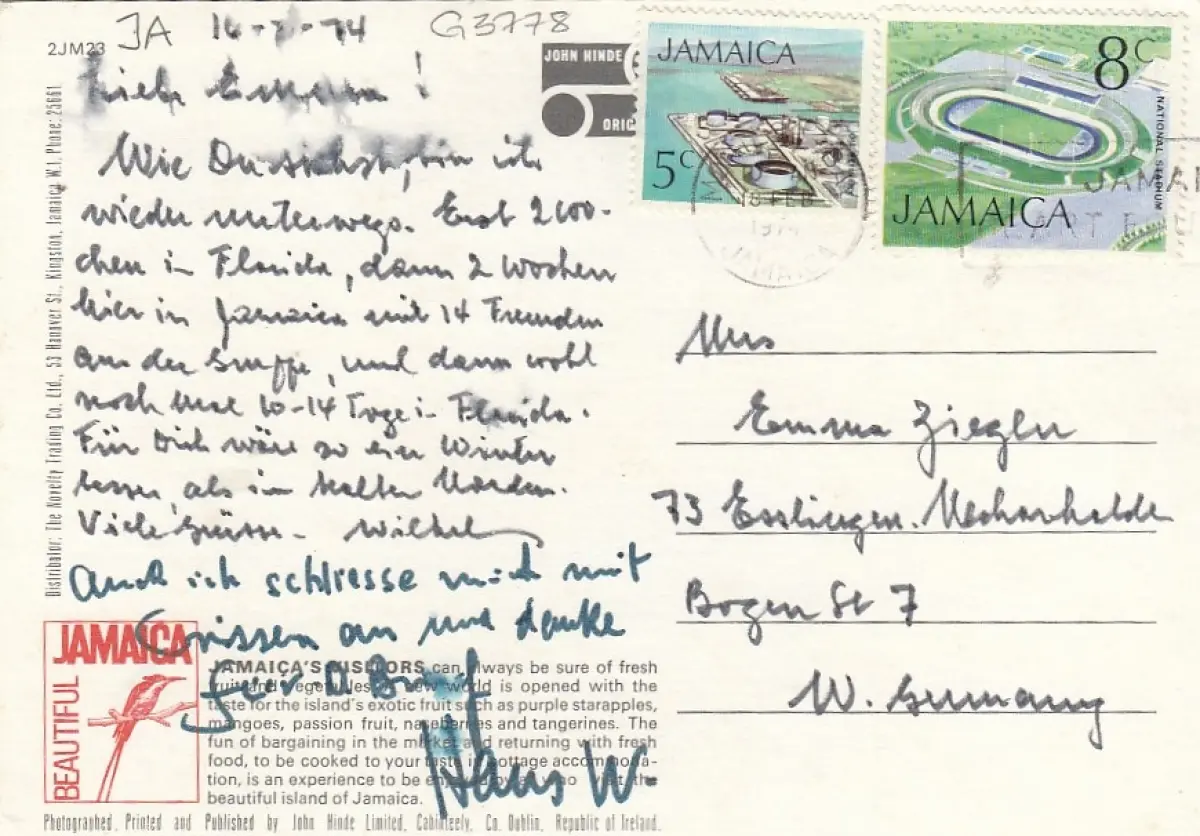 2JM23
JA
G3778
16-2-74
Liebe Emma!
Wie Du siehst, bin ich
wieder unterwegs. Erst 2 Wo-
chen in Florida, dann 2 Wochen
hier in Jamaica mit 14 Freunden
aus der Gruppe, und dann wohl
noch mal 10-14 Tage in Florida.
Für Dich wäre so ein Winter
besser, als im kalten Norden.
Viele Grüsse.
Auch ich schliesse mich mit
Grüssen an und danke
für d. Brief
Hans W
Distributor: The Novelty Trading Co. Ltd., 53 Hanover St., Kingston, Jamaica W.I. Phone: 25661
JOHN HINDE
ORIG
JAMAICA
5c
8c
NATIONAL STADIUM
JAMAICA
18 FEB
JAMAI
Mrs
Emma Ziegler
73 Esslingen. Neckarhalde
Bogen St 7
W. Germany
JAMAICA
BEAUTIFUL
JAMAICA'S VISITORS can always be sure of fresh
fruit and vegetables. A new world is opened with the
taste for the island's exotic fruit such as purple starapples,
mangoes, passion fruit, naseberries and tangerines. The
fun of bargaining in the market and returning with fresh
food, to be cooked to your taste in cottage accommoda-
tion, is an experience to be enjoyed by all who visit the
beautiful island of Jamaica.
Photographed, Printed and Published by John Hinde Limited, Cabinteely, Co. Dublin, Republic of Ireland.